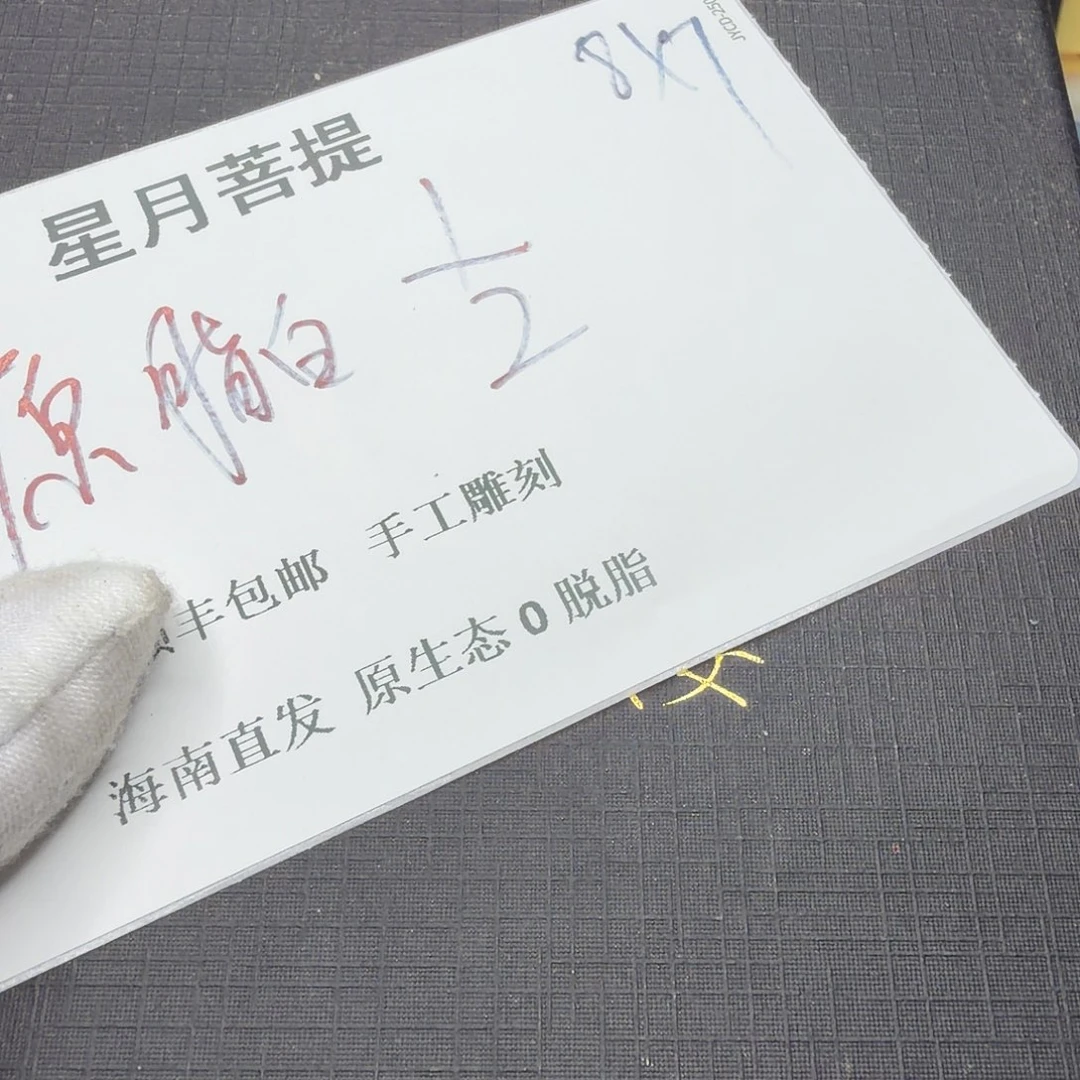 8X7
JYCD-250
星月菩提
原脂白 1/2
顺丰包邮 手工雕刻
海南直发 原生态0脱脂